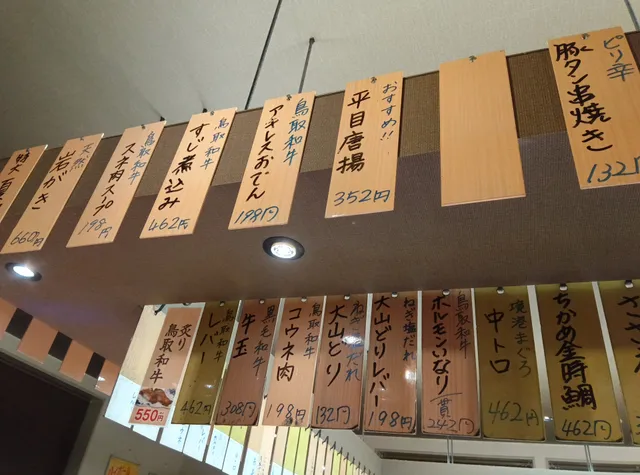 天然
岩がき
660円
鳥取和牛
スネ肉スープ
198円
鳥取和牛
すじ煮込み
462円
鳥取和牛
アキレスおでん
198円
おすすめ!!
平目唐揚
352円
ピリ辛
豚タン串焼き
132円
炙り
鳥取和牛
550円
レバー
462円
黒毛和牛
牛玉
308円
鳥取和牛
コウネ肉
198円
大山どり
132円
ねぎ塩だれ
大山どりレバー
198円
鳥取和牛
ホルモンいなり
一貫
242円
境港まぐろ
中トロ
462円
ちかめ金時鯛
462円